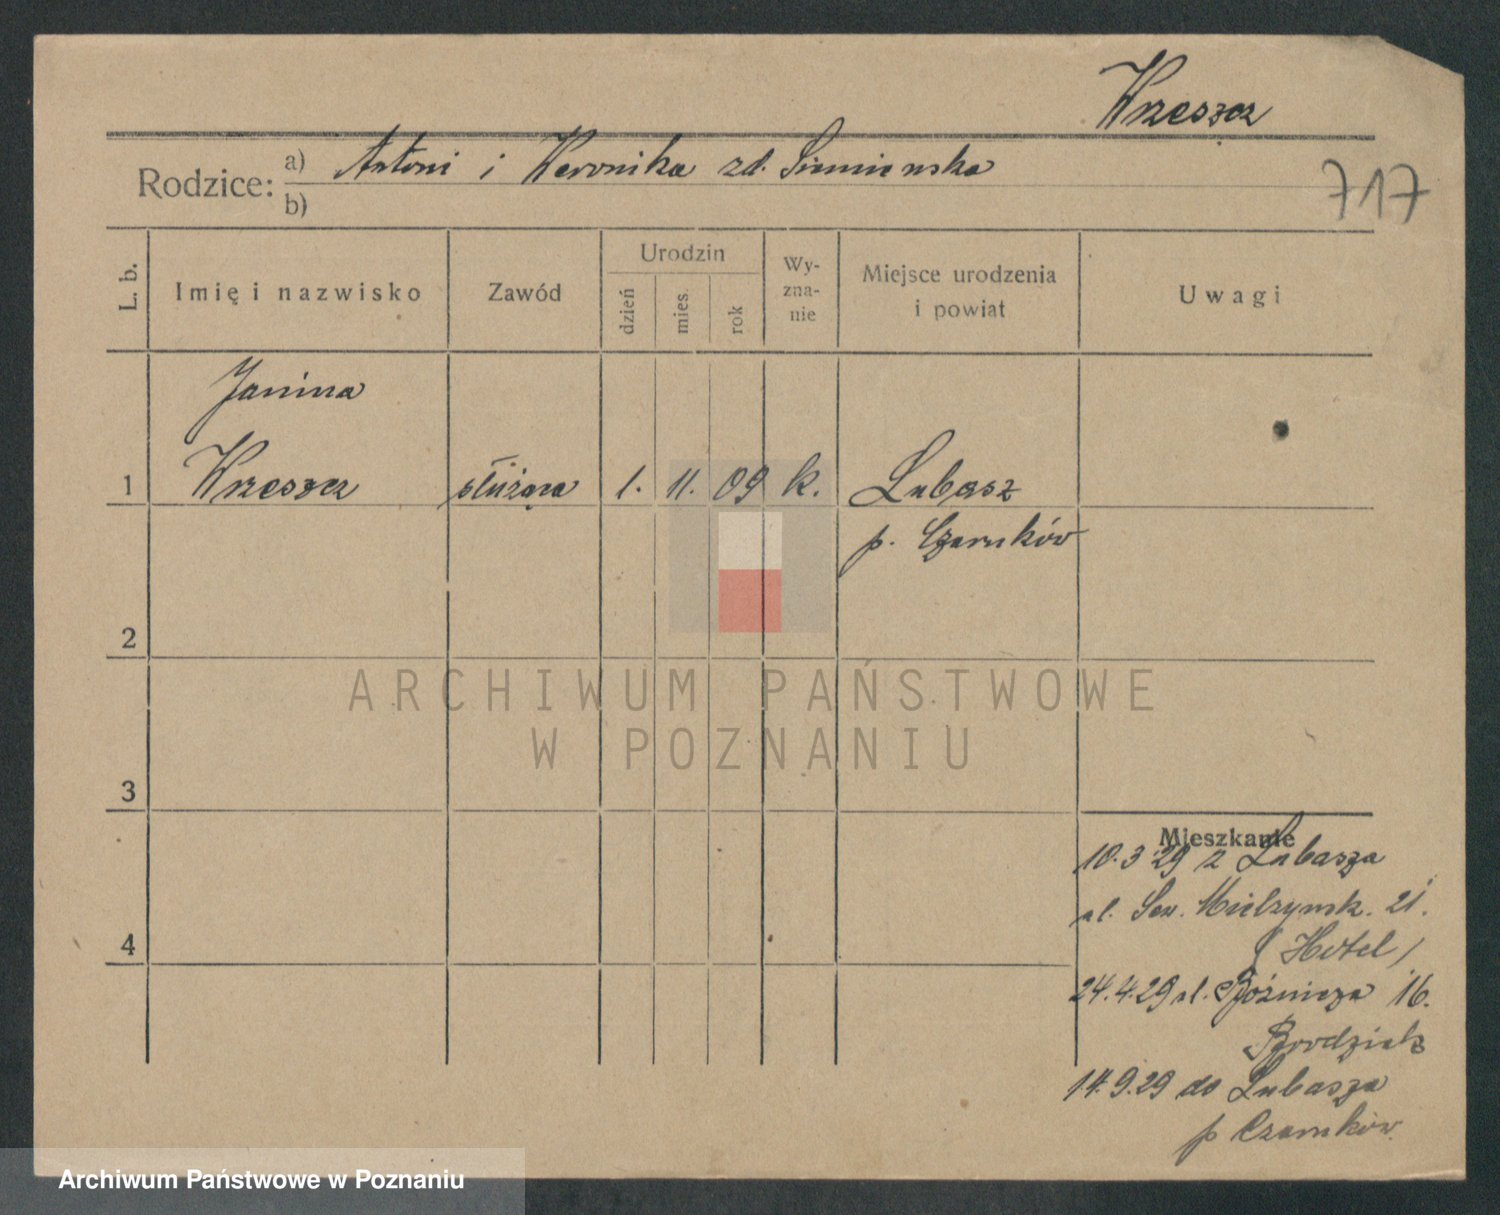 Wrzeszcz
Rodzice: a) Antoni i Weronika zd. Siemieńska
b)
717
L. b. Imię i nazwisko Zawód Urodzin dzień mies. rok Wy-zna-nie Miejsce urodzenia i powiat Uwagi
Janina
1 Wrzeszcz służąca 1. 11. 09 k. Lubasz
p. Czarnków
2
ARCHIWUM PAŃSTWOWE
W POZNANIU
3
Mieszkanie
10.3.29 z Lubasza
ul. Sew. Mielżyńsk. 21.
4
(Hotel)
24.4.29 ul. Bóżnicza 16.
14.9.29 do Lubasza
p Czarnków.
Archiwum Państwowe w Poznaniu